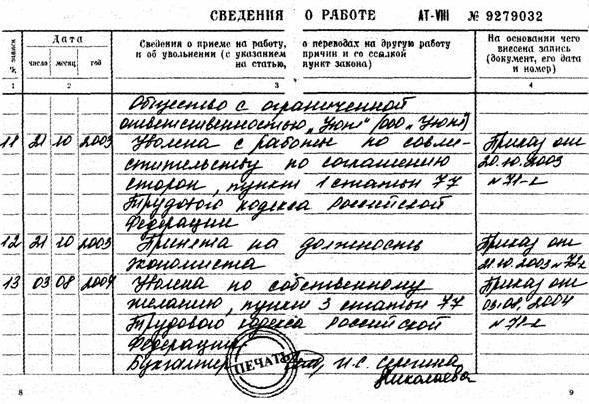 СВЕДЕНИЯ О РАБОТЕ АТ-VIII № 9279032
№ записи
Дата
число месяц год
Сведения о приеме на работу, о переводах на другую работу
и об увольнении (с указанием причин и со ссылкой
на статью, пункт закона)
На основании чего
внесена запись
(документ, его дата
и номер)
1 2 3 4
Общество с ограниченной
ответственностью „Уют" (ООО „Уют")
11 21 10 2003 Уволена с работы по совме- Приказ от
стительству по соглашению 20.10.2003
сторон, пункт 1 статьи 77 №71-к
Трудового кодекса Российской
Федерации
12 21 10 2003 Принята на должность Приказ от
экономиста 21.10.2003 №72-к
13 03 08 2004 Уволена по собственному Приказ от
желанию, пункт 3 статьи 77 03.08.2004
Трудового кодекса Российской №71-к
Федерации
Бухгалтер И.С. Серегина
ПЕЧАТЬ
Николаева
8 9